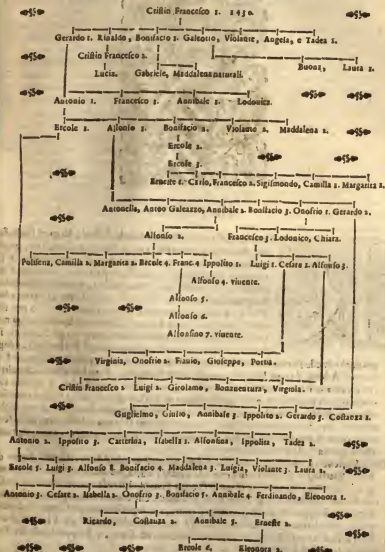 Cristin Francesco 1. 1430.
Gerardo 1. Rinaldo, Bonifacio 1. Galeotto, Violante, Angela, e Tadea 1.
Cristin Francesco 2. Buona, Laura 1.
Lucia. Gabriele, Maddalena naturali.
Antonio 1. Francesco 1. Annibale 1. Lodovica.
Ercole 1. Alfonso 1. Bonifacio 2. Violante 2. Maddalena 2.
Ercole 2.
Ercole 3.
Erneste 1. Carlo, Francesco 2. Sigismondo, Camilla 1. Margarita 1.
Antonella, Galeazzo, Annibale 2. Bonifacio 3. Onofrio 1. Gerardo 2.
Alfonso 2. Francesco 3. Lodovico, Chiara.
Polisena, Camilla 2. Margarita 2. Ercole 4. Franc. 4 Ippolito 1. Luigi 1. Cesare 1. Alfonso 3.
Alfonso 4. vivente.
Alfonso 5.
Alfonso 6.
Alfonsino 7. vivente.
Virginia, Onofrio 2. Flavio, Gioseppe, Portia.
Cristin Francesco 3 Luigi 2. Girolamo, Bonaventura, Virginia.
Guglielmo, Giulio, Annibale 3. Ippolito 2. Gerardo 3. Costanza 1.
Antonio 2. Ippolito 3. Catterina, Isabella 1. Alfonsina, Ippolita, Tadea 2.
Ercole 5. Luigi 3. Alfonso 8. Bonifacio 4. Maddalena 3. Luigia, Violante 3. Laura 2.
Antonio 3. Cesare 2. Isabella 2. Onofrio 3. Bonifacio 5. Annibale 4. Ferdinando, Eleonora 1.
Ricardo, Costanza 2. Annibale 5. Erneste 2.
Ercole 6. Eleonora 2.